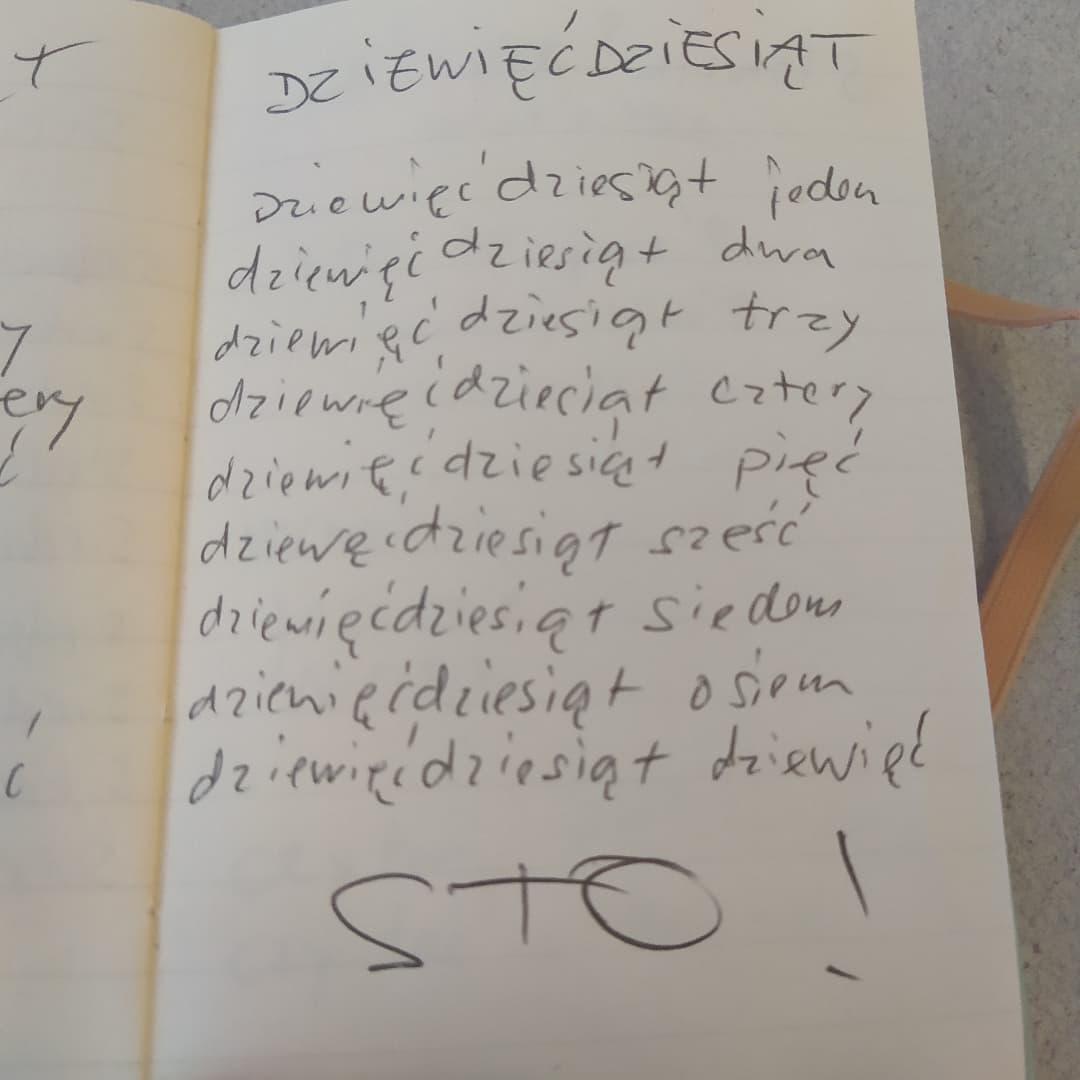 DZIEWIĘĆDZIESIĄT
dziewięćdziesiąt jeden
dziewięćdziesiąt dwa
dziewięćdziesiąt trzy
dziewięćdzieciąt cztery
dziewięćdziesiąt pięć
dziewęćdziesiąt sześć
dziewięćdziesiąt siedem
dziewięćdziesiąt osiem
dziewięćdziesiąt dziewięć
STO!